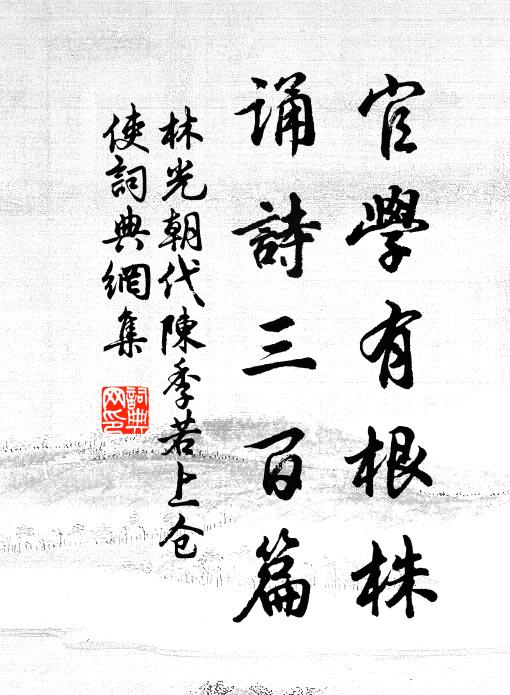 官學有根株
誦詩三百篇
林光朝代陳季若上仓
使詞典網集
詞典网印